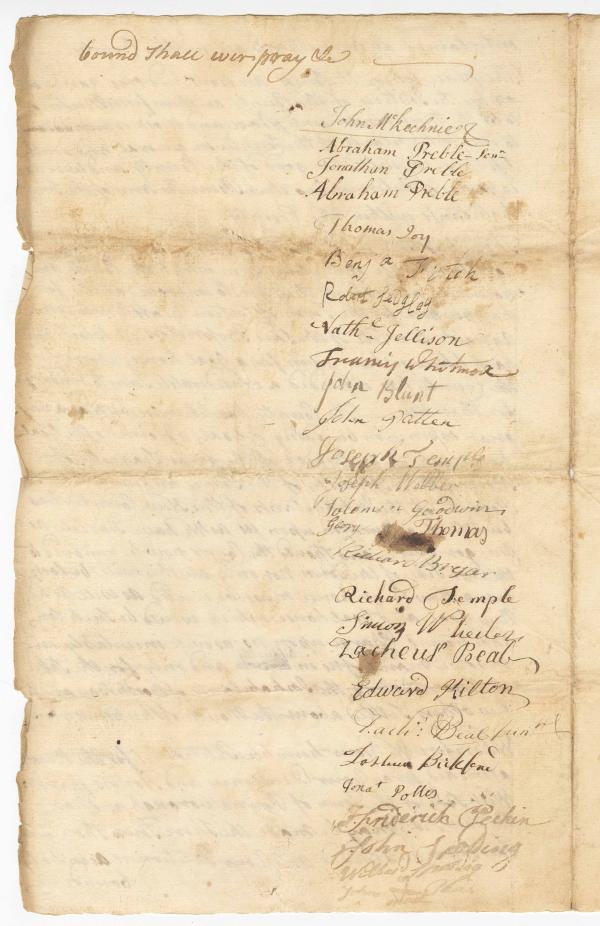 bound Shall ever pray &c
John McKechnie
Abraham Preble Senr
Jonathan Preble
Abraham Preble
Thomas Joy
Benja Fitch
Robt Sedgley
Nathl Jellison
Whitmore
John Blunt
John Patten
Joseph Temple
Joseph Webber
Solomon Goodwin
Thomas
Bryar
Richard Temple
Simion Wheeler
Zacheus Beal
Edward Kilton
Zachs Beal junr
Joshua Bickford
Jonat Polles
Friderich Peckin
John Spolding
Willard Spolding
John